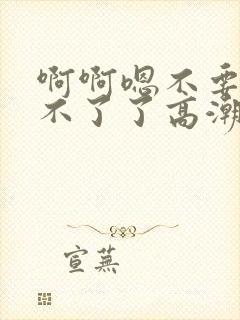 啊啊嗯不要
不了了高潮
宣蕪